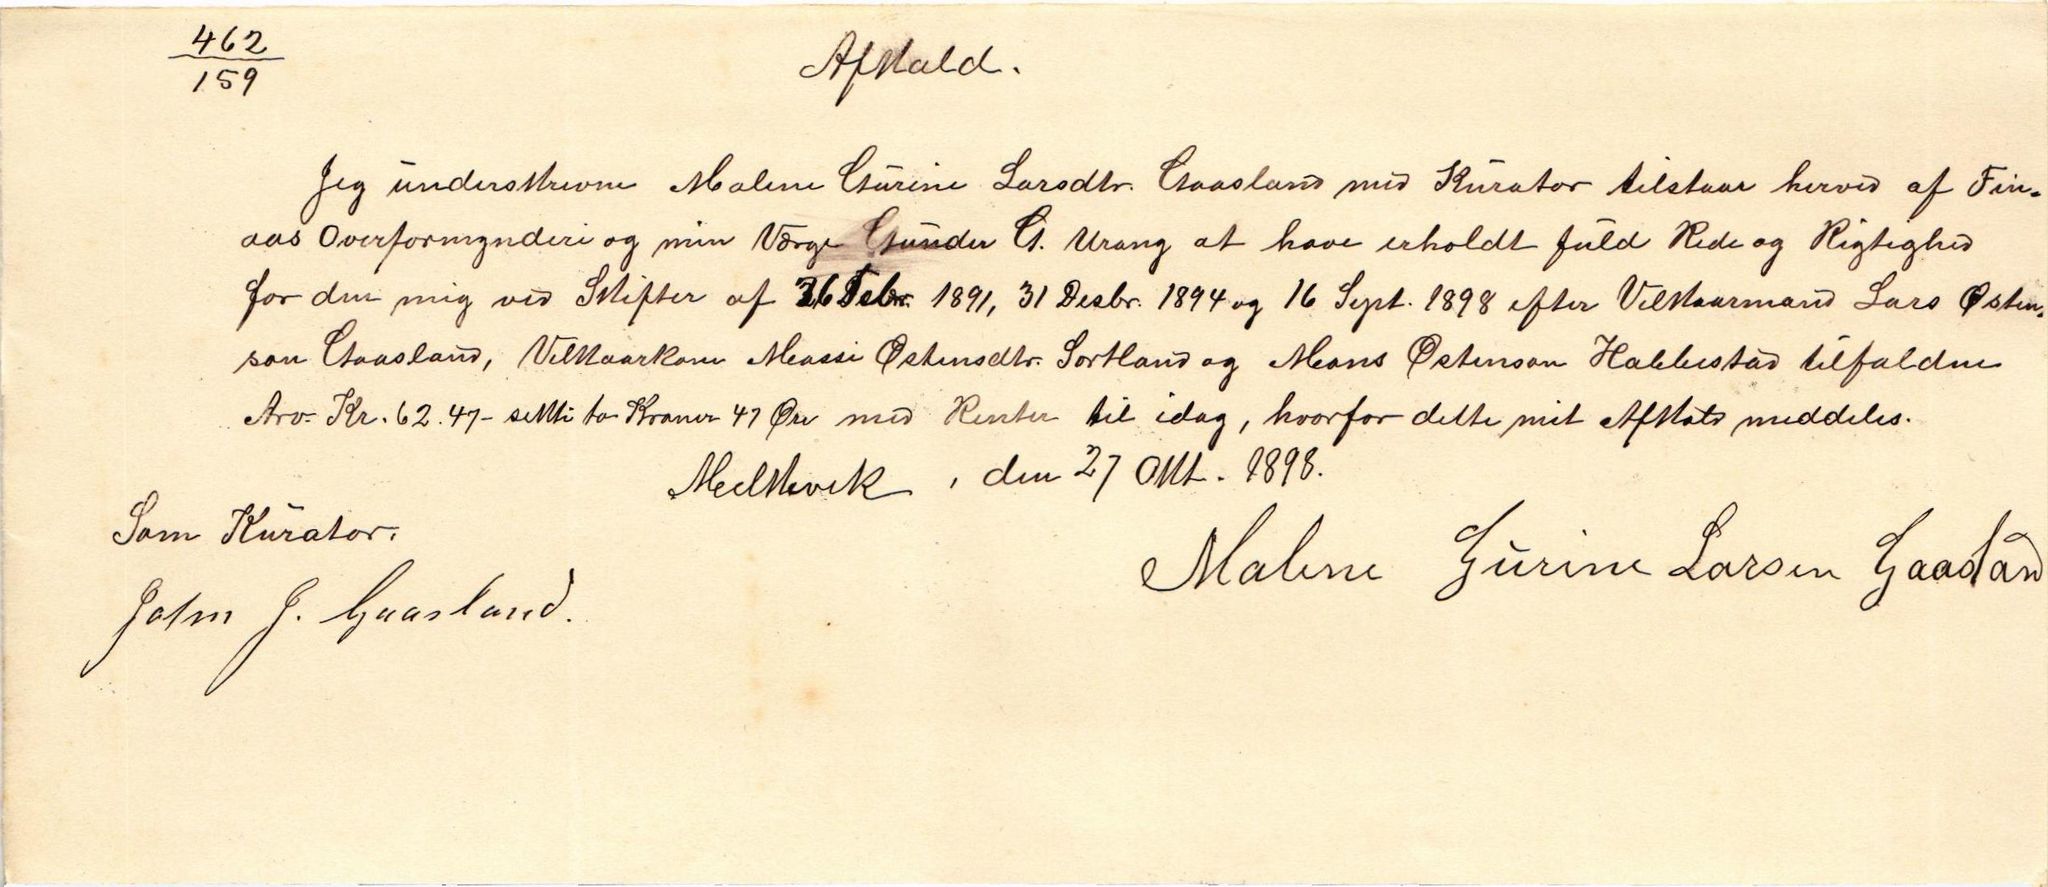 462
159
Afkald.
Jeg underskrevne Malene Gurine Larsdtr. Gaasland med Kurator tilstaar herved af Fin-
aas Overformynderi og min Værge Gunder G. Urang at have erholdt fuld Rede og Rigtighed
for den mig ved Skifter af 26 Febr. 1891, 31 Desbr. 1894 og 16 Sept. 1898 efter Velkaarmand Lars Østen-
son Gaasland, Velkaarkone Massi Østensdtr. Sortland og Mons Østenson Habbestad tilfaldne
Arv. Kr. 62.47- sekti to Kroner 47 Øre med Renter til idag, hvorfor dette mit Afkald meddeles.
Mælkevik, den 27 Okt. 1898.
Som Kurator.
John J. Gaasland.
Malene Gurine Larsen Gaasland